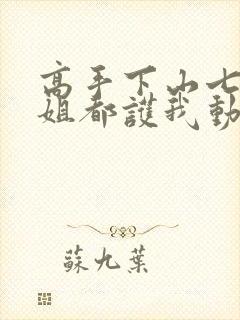 高手下山七
姐都護我動
蘇九葉